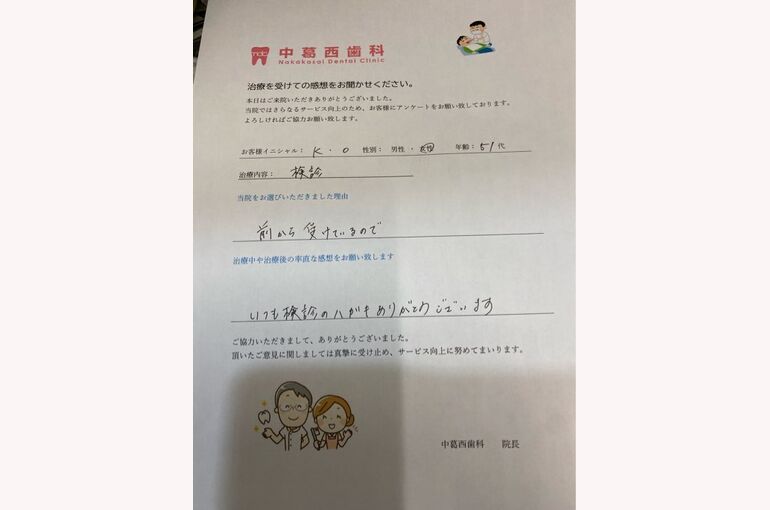 中葛西歯科
Nakakasai Dental Clinic
治療を受けての感想をお聞かせください。
本日はご来院いただきありがとうございました。
当院ではさらなるサービス向上のため、お客様にアンケートをお願い致しております。
よろしければご協力お願い致します。
お客様イニシャル： K・O 性別： 男性・女性 年齢：51代
治療内容： 検診
当院をお選びいただきました理由
前から受けているので
治療中や治療後の率直な感想をお願い致します
いつも検診のハガキありがとうございます
ご協力いただきまして、ありがとうございました。
頂いたご意見に関しましては真摯に受け止め、サービス向上に努めてまいります。
中葛西歯科 院長